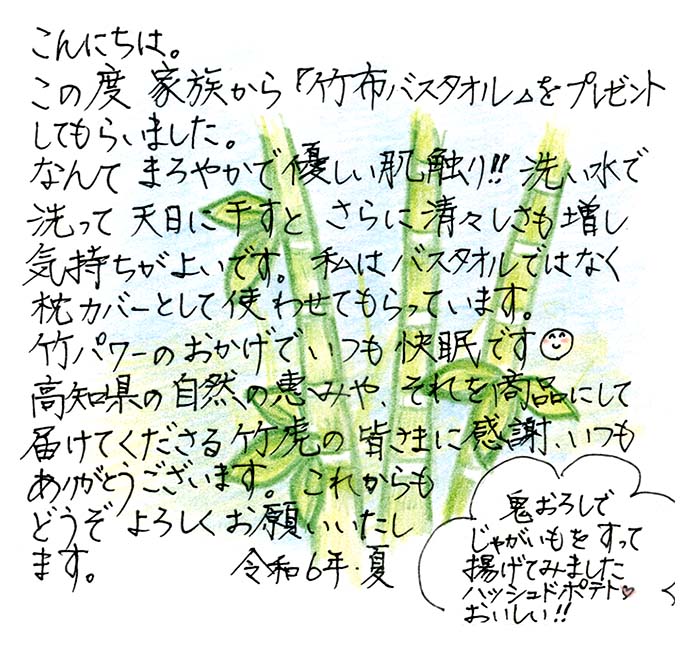 こんにちは。
この度 家族から『竹布バスタオル』をプレゼント
してもらいました。
なんて まろやかで優しい肌触り!! 洗い水で
洗って 天日に干すと さらに清々しさも増し
気持ちがよいです。私はバスタオルではなく
枕カバーとして使わせてもらっています。
竹パワーのおかげでいつも快眠です☺
高知県の自然の恵みや、それを商品にして
届けてくださる竹虎の皆さまに感謝、いつも
ありがとうございます。これからも
どうぞ よろしくお願いいたし
ます。 令和6年・夏
鬼おろしで
じゃがいもをすって
揚げてみました
ハッシュドポテト♥
おいしい!!